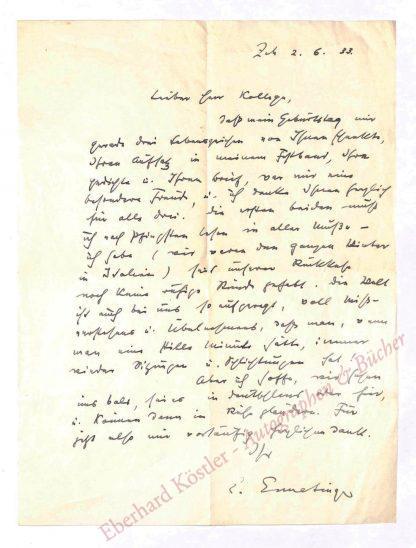 Zch 2. 6. 33.
Lieber Herr Kollege,
Daß mein Geburtstag mir
gerade drei Lebenszeichen von Ihnen schenkte,
Ihren Aufsatz in meinem Festband, Ihre
Gedichte u. Ihren Brief, war mir eine
besondere Freude, u. ich danke Ihnen herzlich
für alle drei. Die ersten beiden muß
ich nach Pfingsten lesen in aller Muße –
ich habe (wir waren den ganzen Winter
in Italien) seit unserer Rückkehr
noch keine ruhige Stunde gehabt. Die Welt
ist auch bei uns so aufgeregt, voll Miß-
verstehens u. Übelnehmens, daß man, wenn
man eine stille Minute hätte, immer
wieder Sitzungen u. Schlichtungen hat.
Aber ich hoffe, wir sehen
uns bald, sei es in Deutschland oder hier,
u. können dann in Ruhe plaudern. Für
jetzt also nur vorläufig herzlichen Dank.
Ihr
E. Ermatinger
Eberhard Köstler - Autographen & Bücher